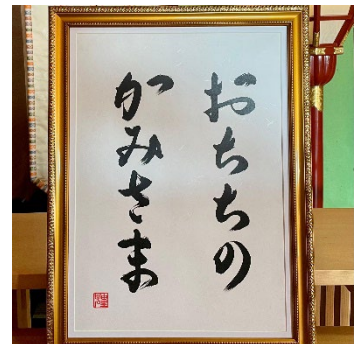 おちちの
かみさま